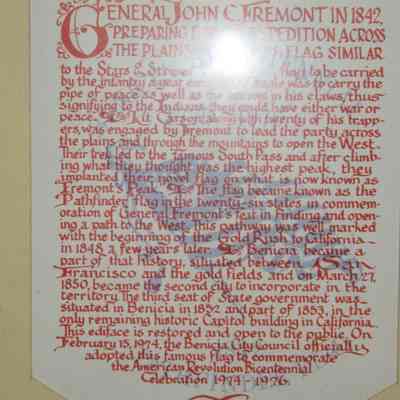 GENERAL JOHN C. FREMONT IN 1842,
PREPARING EXPEDITION ACROSS
THE PLAINS FLAG SIMILAR
to the Stars & Stripes to be carried
by the infantry a year eagle was to carry the
pipe of peace as well as the arrows in his claws, thus
signifying to the Indians they could have either war or
peace. Kit Carson along with twenty of his trapp-
ers, was engaged by Fremont to lead the party across
the plains and through the mountains to open the West.
Their trek led to the famous South Pass and after climb-
ing what they thought was the highest peak, they
implanted their novel flag on what is now known as
Fremont's Peak. The flag became known as the
Pathfinder flag in the twenty-six states in commem-
oration of General Fremont's feat in finding and open-
ing a path to the West. This pathway was well marked
with the beginning of the Gold Rush to California
in 1848. A few years later Benicia became a
part of that history, situated between San
Francisco and the gold fields and on March 27,
1850, became the second city to incorporate in the
territory. The third seat of State government was
situated in Benicia in 1852 and part of 1853, in the
only remaining historic Capitol building in California.
This edifice is restored and open to the public. On
February 15, 1974, the Benicia City Council officially
adopted this famous flag to commemorate
the American Revolution Bicentennial
Celebration 1974-1976.